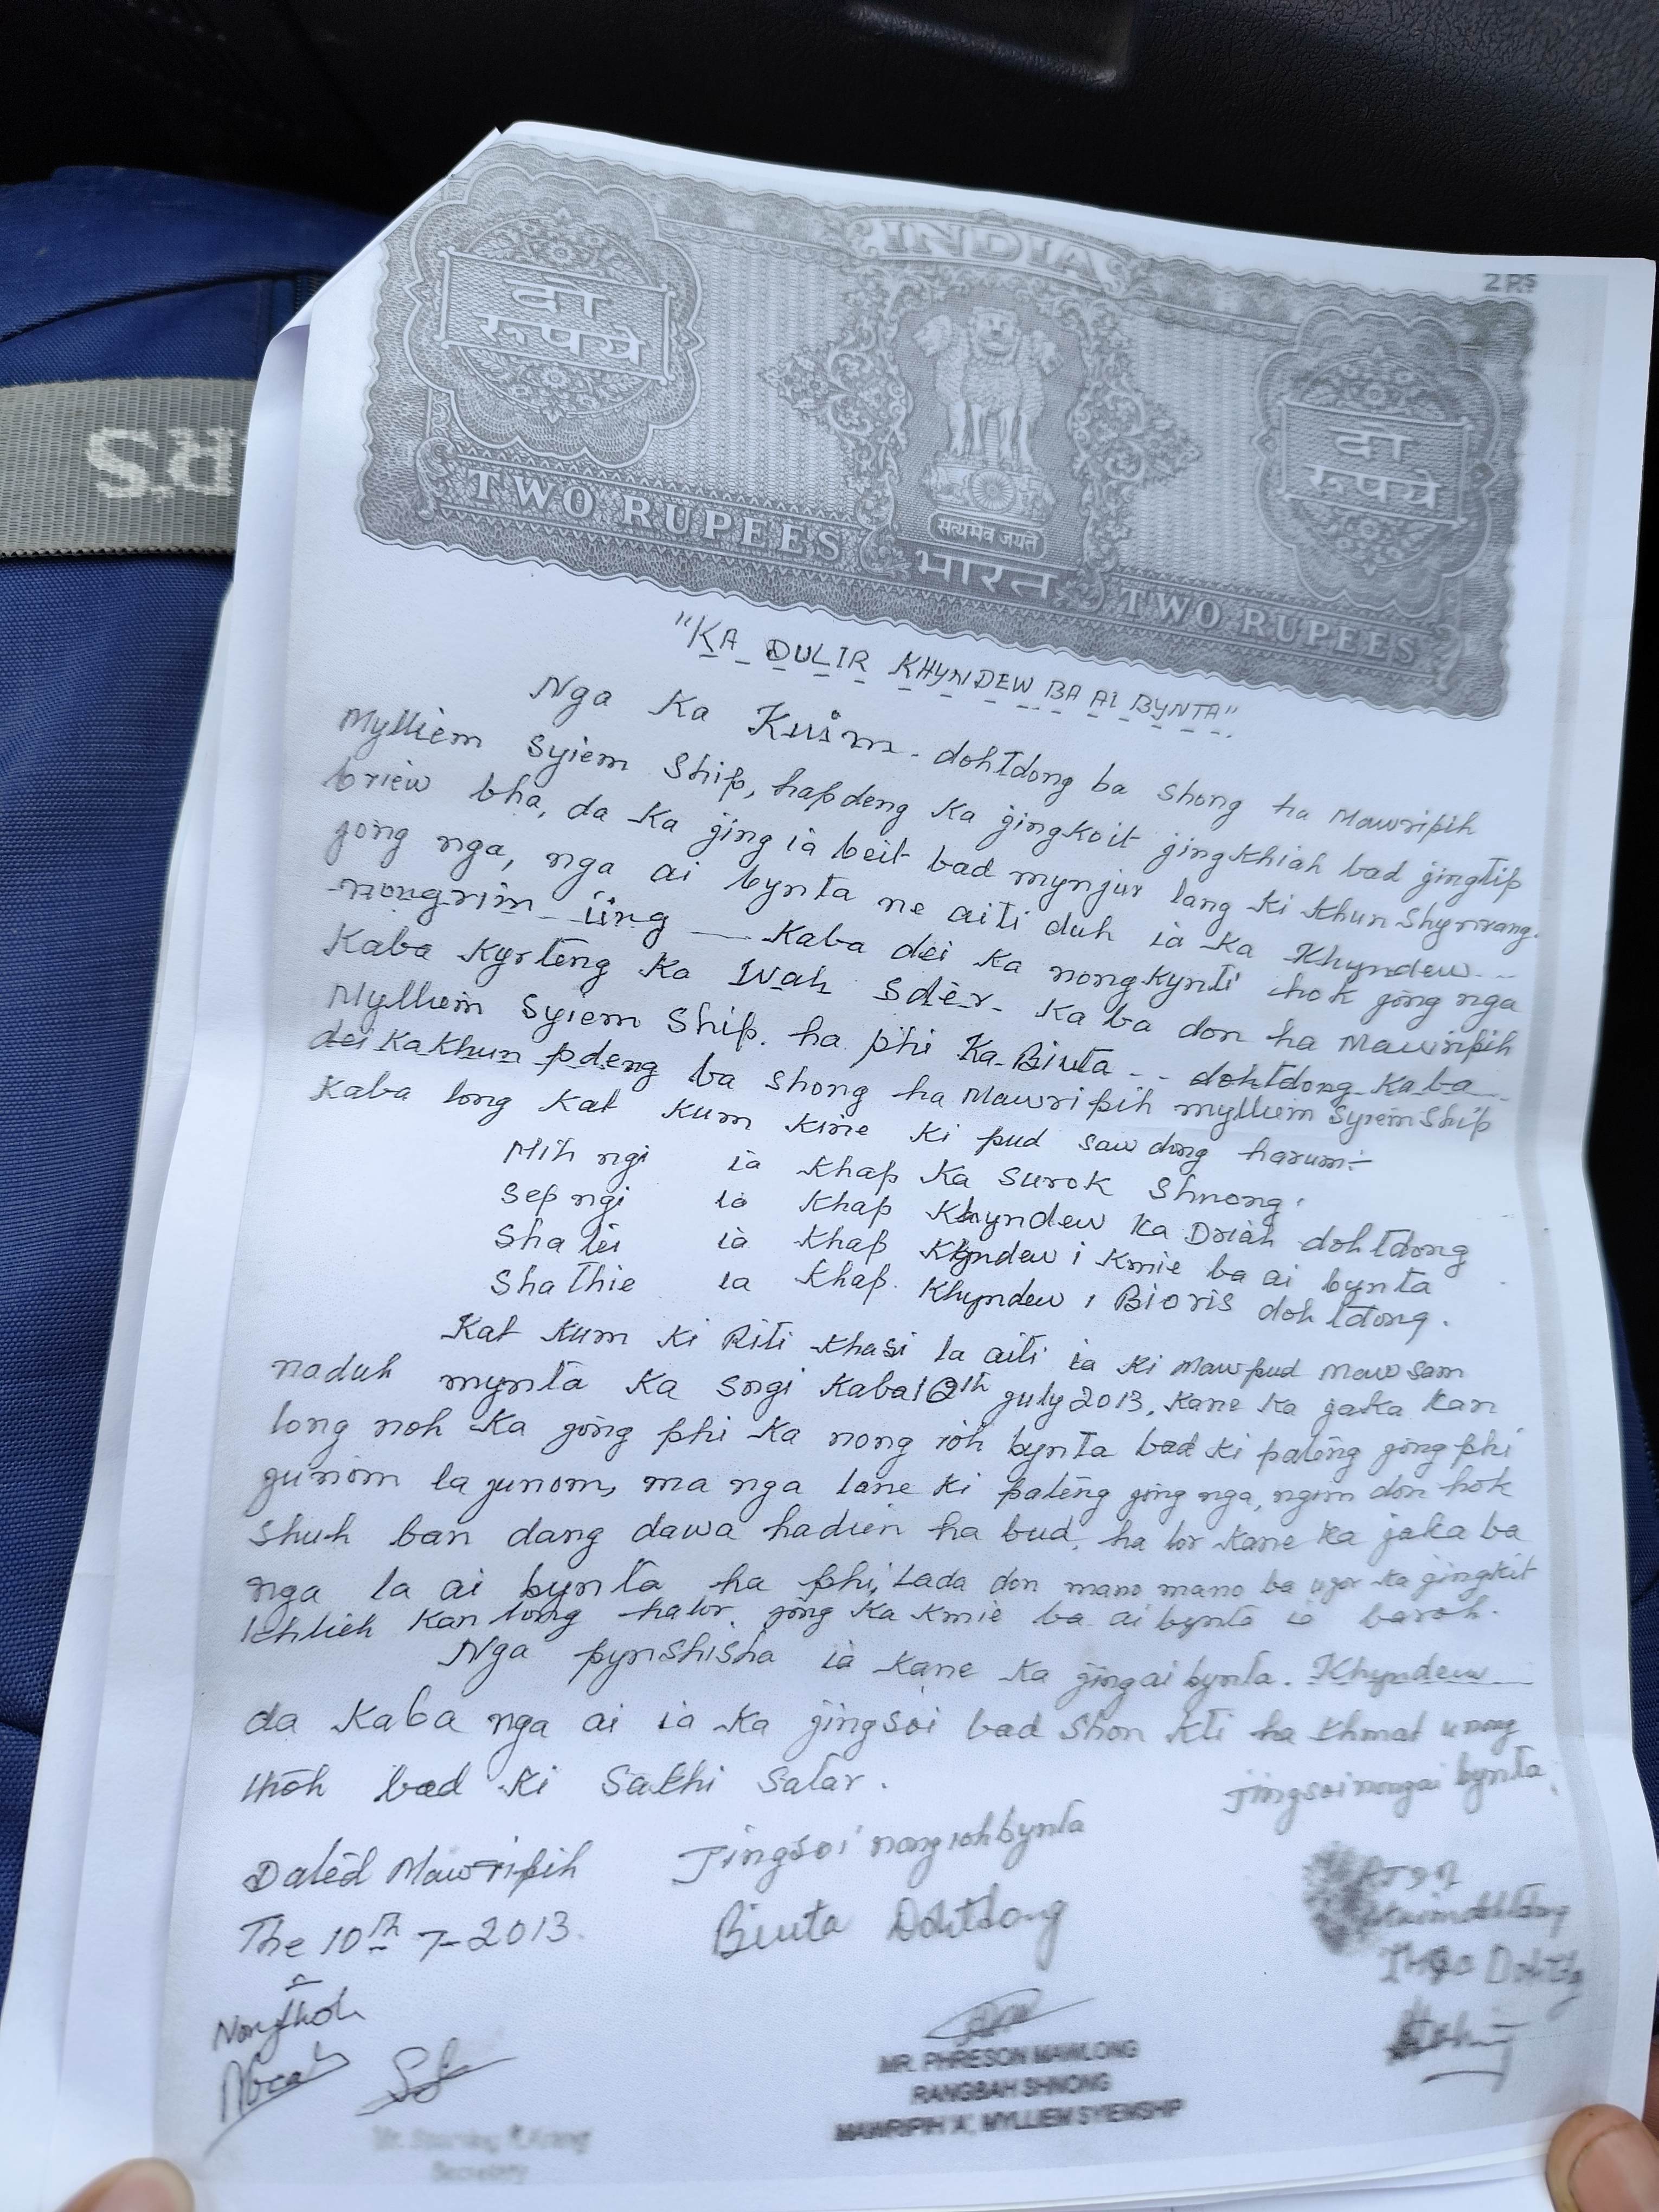 INDIA
2 RS
दो
रूपये
दो
रूपये
सत्यमेव जयते
TWO RUPEES
भारत
TWO RUPEES
R.S
"KA DULIR KHYNDEW BA AI BYNTA"
Nga Ka Kuim dohtdong ba shong ha Mawripih
Mylliem Syiem Ship, hapdeng Ka jingkoit jingkhiah bad jingtip
briew bha, da Ka jing ia beit bad mynjur lang Ki Khun Shynrang
jong nga, nga ai bynta ne aiti duh ia Ka Khyndew
nongrim iing — Kaba dei Ka nongkynti hok jong nga
Kaba Kyrteng Ka Wah Sder - Ka ba don ha Mawripih
Mylliem Syiem Ship. ha phi Ka Biuta -- dohtdong Kaba
dei Ka Khun pdeng ba shong ha Mawripih mylliem Syiem Ship
Kaba long Kat Kum Kine Ki pud saw dong harum:-
Mih ngi ia Khap Ka Surok Shnong.
Sep ngi ia Khap Khyndew Ka Driah dohtdong
Sha lei ia Khap Khyndew i Kmie ba ai bynta
Sha Thie ia Khap Khyndew i Bioris dohtdong.
Kat Kum Ki Riti Khasi la aiti ia Ki Mawpud Mawsam
naduh mynta Ka Sngi Kaba 10th July 2013, Kane Ka jaka Kan
long noh Ka jong phi Ka nong ioh bynta bad Ki pateng jong phi
junom la junom, ma nga lane Ki pateng jong nga, ngim don hok
Shuh ban dang dawa hadien ha bud, ha lor Kane Ka jaka ba
nga la ai bynta ha phi, Lada don mano mano ba Ka jingkit
Khlieh Kan long halor jong Ka Kmie ba ai bynta ia baroh.
Nga pynshisha ia Kane Ka jingai bynta. Khyndew
da Kaba nga ai ia Ka jingsoi bad Shon Kti ha Khmat u nong
thoh bad Ki Sakhi Satar.
Jingsoi nongai bynta
Jingsoi nong ioh bynta
Dated Mawripih
Biuta Dohtdong
The 10th 7-2013.
Nongthoh
MR. PHRESON MAWLONG
RANGBAH SHNONG
MAWRIPIH 'A', MYLLIEM SYIEMSHIP
Secretary